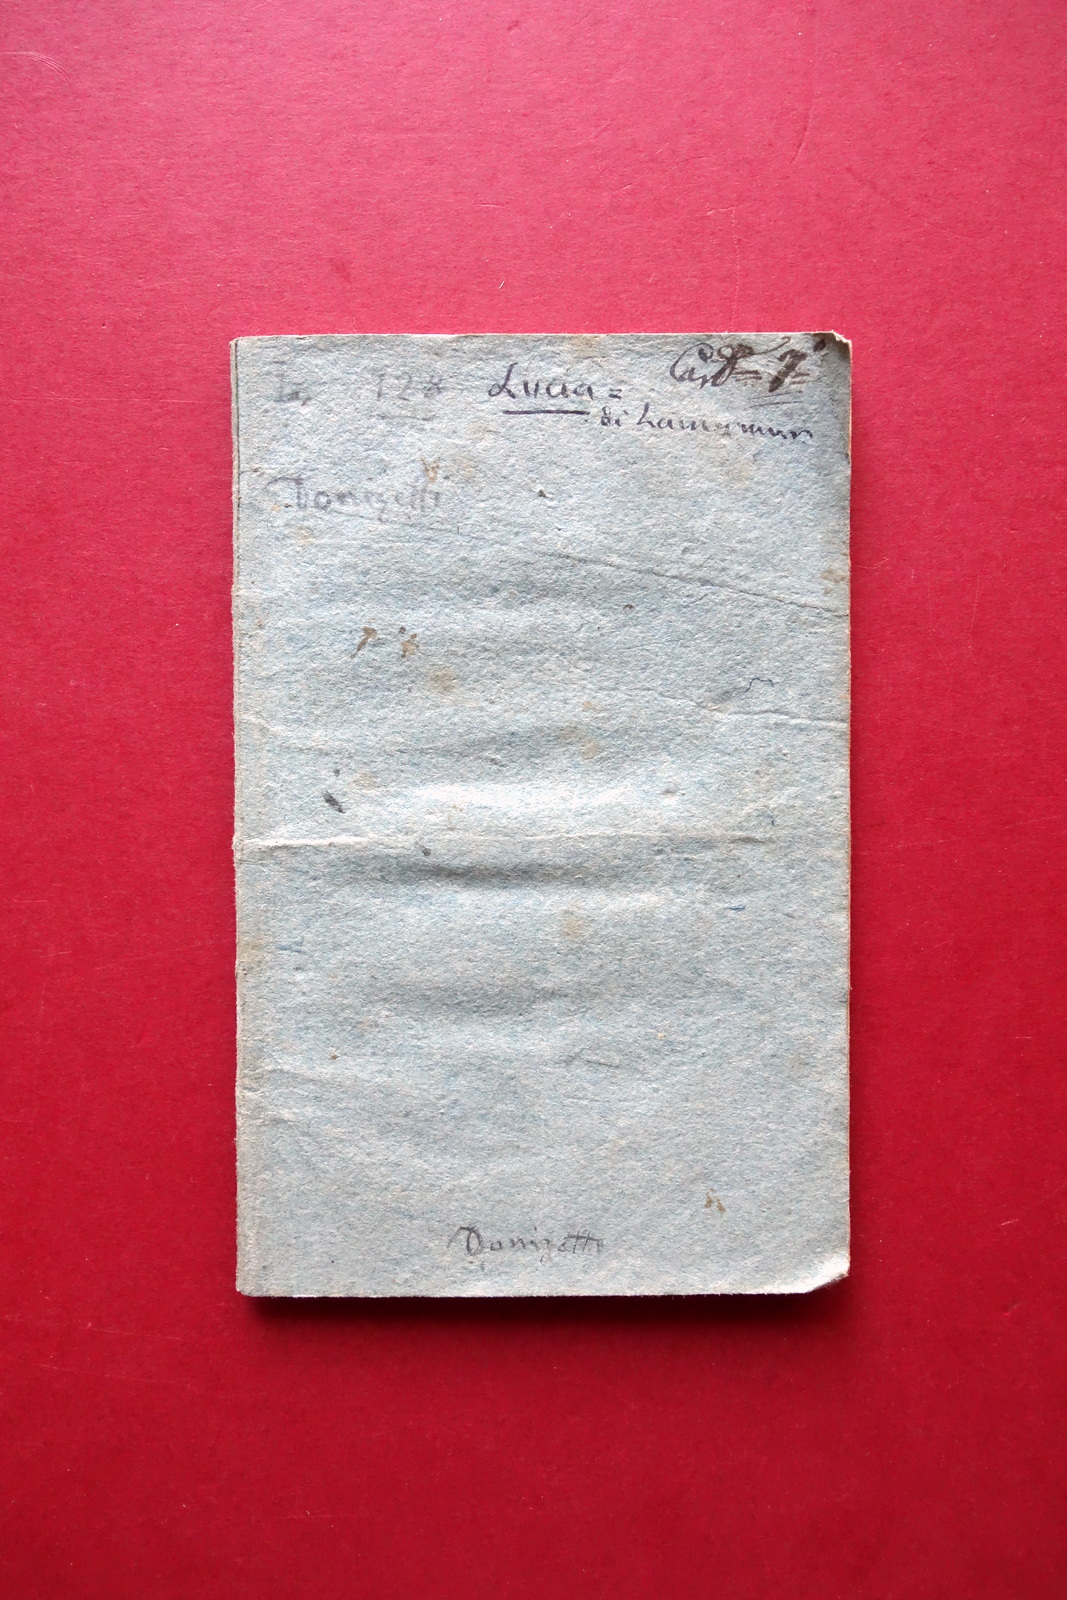 L. 128 Lucia =
di Lammermoor
Donizetti
Donizetti